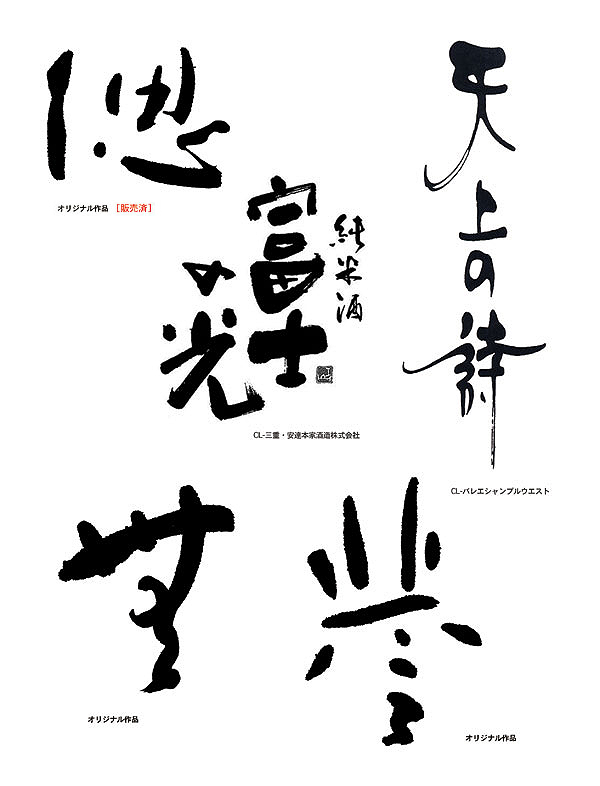 オリジナル作品 ［販売済］
純米酒
富士
の光
CL-三重・安達本家酒造株式会社
天上の詩
CL-バレエシャンブルウエスト
オリジナル作品
オリジナル作品